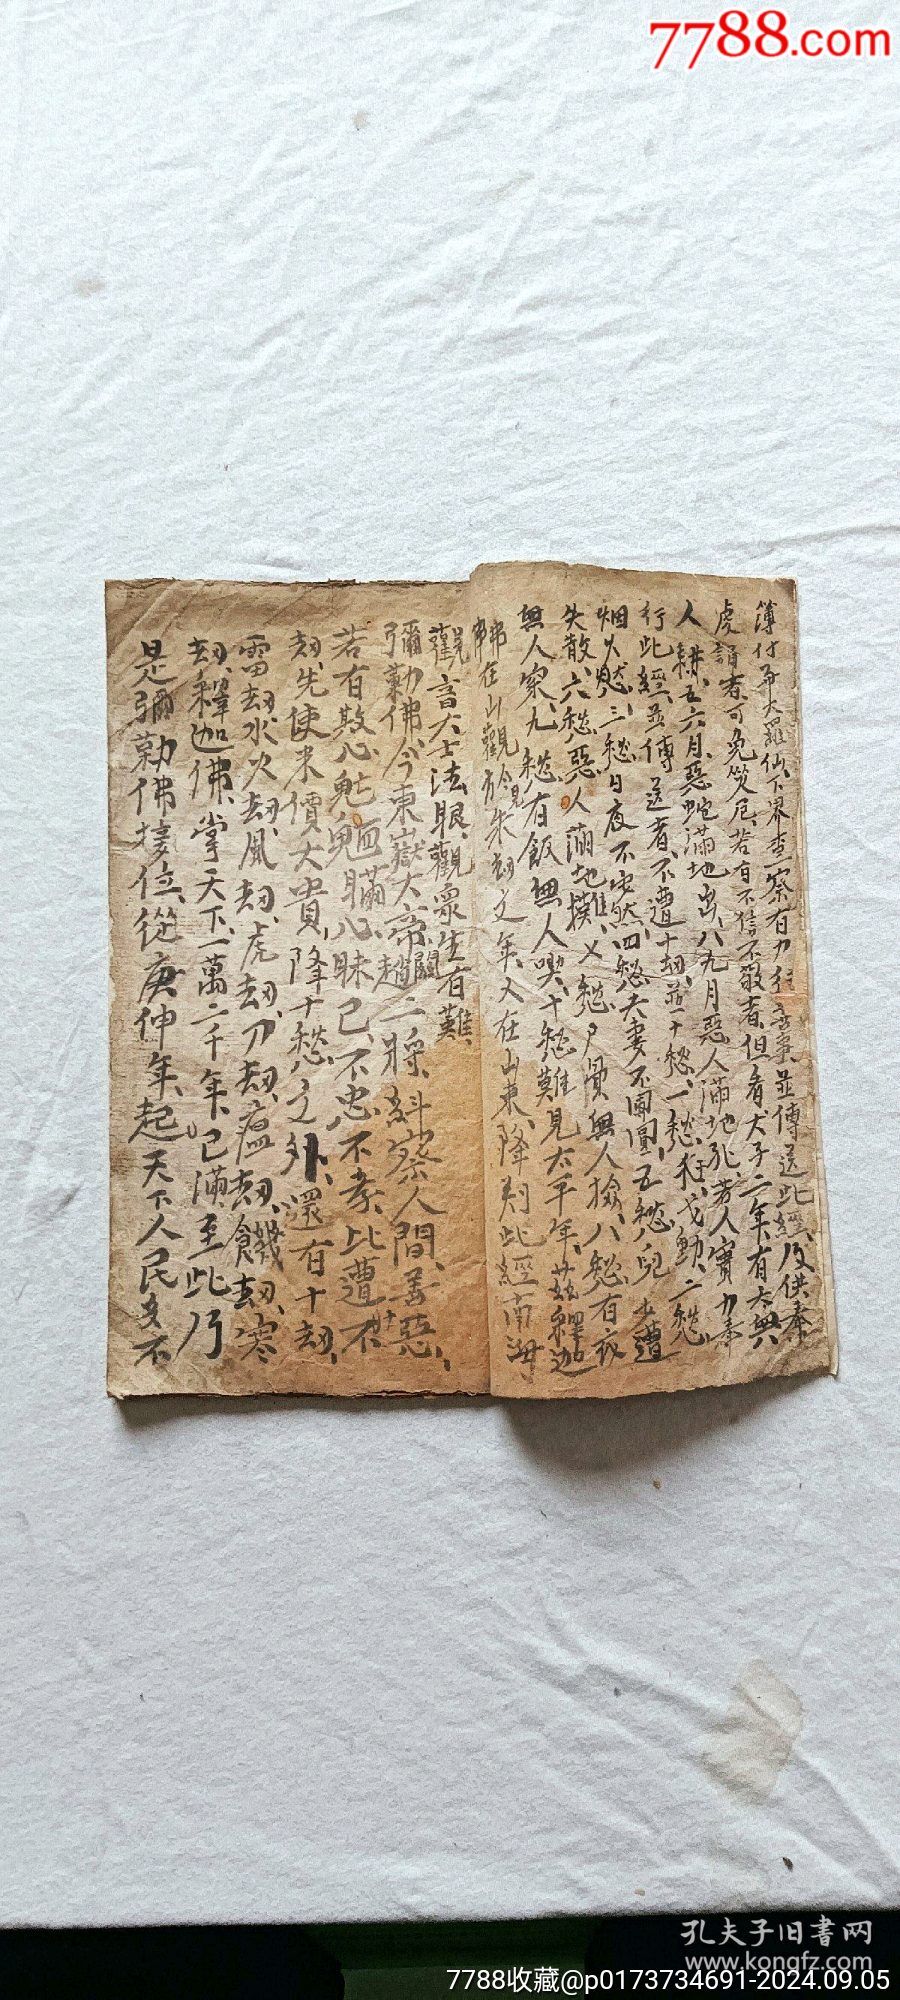 7788.com
簿付 大羅仙下界查察有力 善事並傳送此經及供奉
虔誦者可免災厄若有不信不敬者但看犬子二年有 無
人耕五六月惡蛇滿地出八九月惡人滿地死若人實力奉
行此經並傳送者不遭十劫並十愁一愁 動二愁
烟火愁三愁日夜不安然四愁夫妻不團圓五愁兒 遭
失散六愁惡人滿地攤七愁尸骨無人撿八愁有衣
無人穿九愁有飯無人喫十愁難見太平年茲釋迦
佛在山觀於 劫之年又在山東降 此經南海
觀音大士法眼觀眾生有難
彌勒佛今東嶽大帝關趙二將糾察人間善惡
若有欺心 瞞心昧己不忠不孝比遭不
劫先使米價大貴降十愁之外還有十劫
雷劫水火劫風劫虎劫刀劫瘟劫饑劫寒
劫釋迦佛掌天下一萬二千年已滿至此乃
是彌勒佛接位從庚伸年起天下人民多不
孔夫子旧書网
www.kongfz.com
7788收藏@p0173734691-2024.09.05